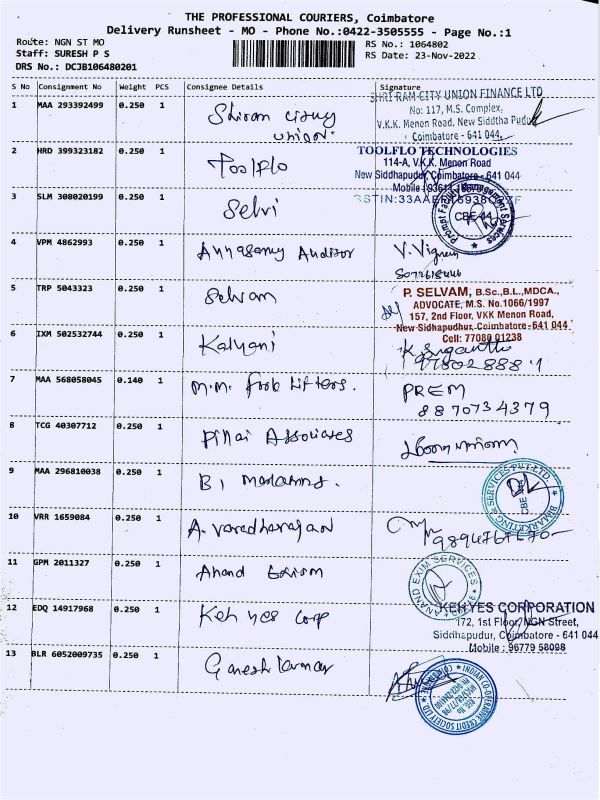 THE PROFESSIONAL COURIERS, Coimbatore
Delivery Runsheet - MO - Phone No.:0422-3505555 - Page No.:1
Route: NGN ST MO
RS No.: 1064802
Staff: SURESH P S
RS Date: 23-Nov-2022
DRS No.: DCJB106480201
S No Consignment No Weight PCS Consignee Details Signature
SHRI RAM CITY UNION FINANCE LTD
No: 117, M.S. Complex,
V.K.K. Menon Road, New Siddha Pudur
Coimbatore - 641 044.
1 MAA 293392499 0.250 1
union.
2 HRD 399323182 0.250 1 Toolflo
TOOLFLO TECHNOLOGIES
114-A, V.K.K. Menon Road
New Siddhapudur, Coimbatore - 641 044
Mobile :
3 SLM 308020199 0.250 1 Selvi
GSTIN:33AAE
Prompt Facility Management Services
CBE-44
4 VPM 4862993 0.250 1 Annasamy Auditor
V. Vignesh
5 TRP 5043323 0.250 1 Selvam
P. SELVAM, B.Sc.,B.L.,MDCA.,
ADVOCATE, M.S. No.1066/1997
157, 2nd Floor, VKK Menon Road,
New Sidhapudhur, Coimbatore-641 044
Cell: 77080 01238
6 IXM 502532744 0.250 1 Kalyani
7 MAA 568058045 0.140 1 M.M. Fork Lifters.
PREM
8870734379
8 TCG 40307712 0.250 1 Pillai Associates
9 MAA 296810038 0.250 1
& SERVICES PVT.LTD.
CBE
10 VRR 1659084 0.250 1 A. Varadharajan
11 GPM 2011327 0.250 1 Anand Exism
ANAND EXIM SERVICES
12 EDQ 14917968 0.250 1 Keh yes corp
KEHYES CORPORATION
172, 1st Floor, NGN Street,
Siddhapudur, Coimbatore - 641 044
Mobile : 96779 58098
13 BLR 6052009735 0.250 1 Ganesh kumar